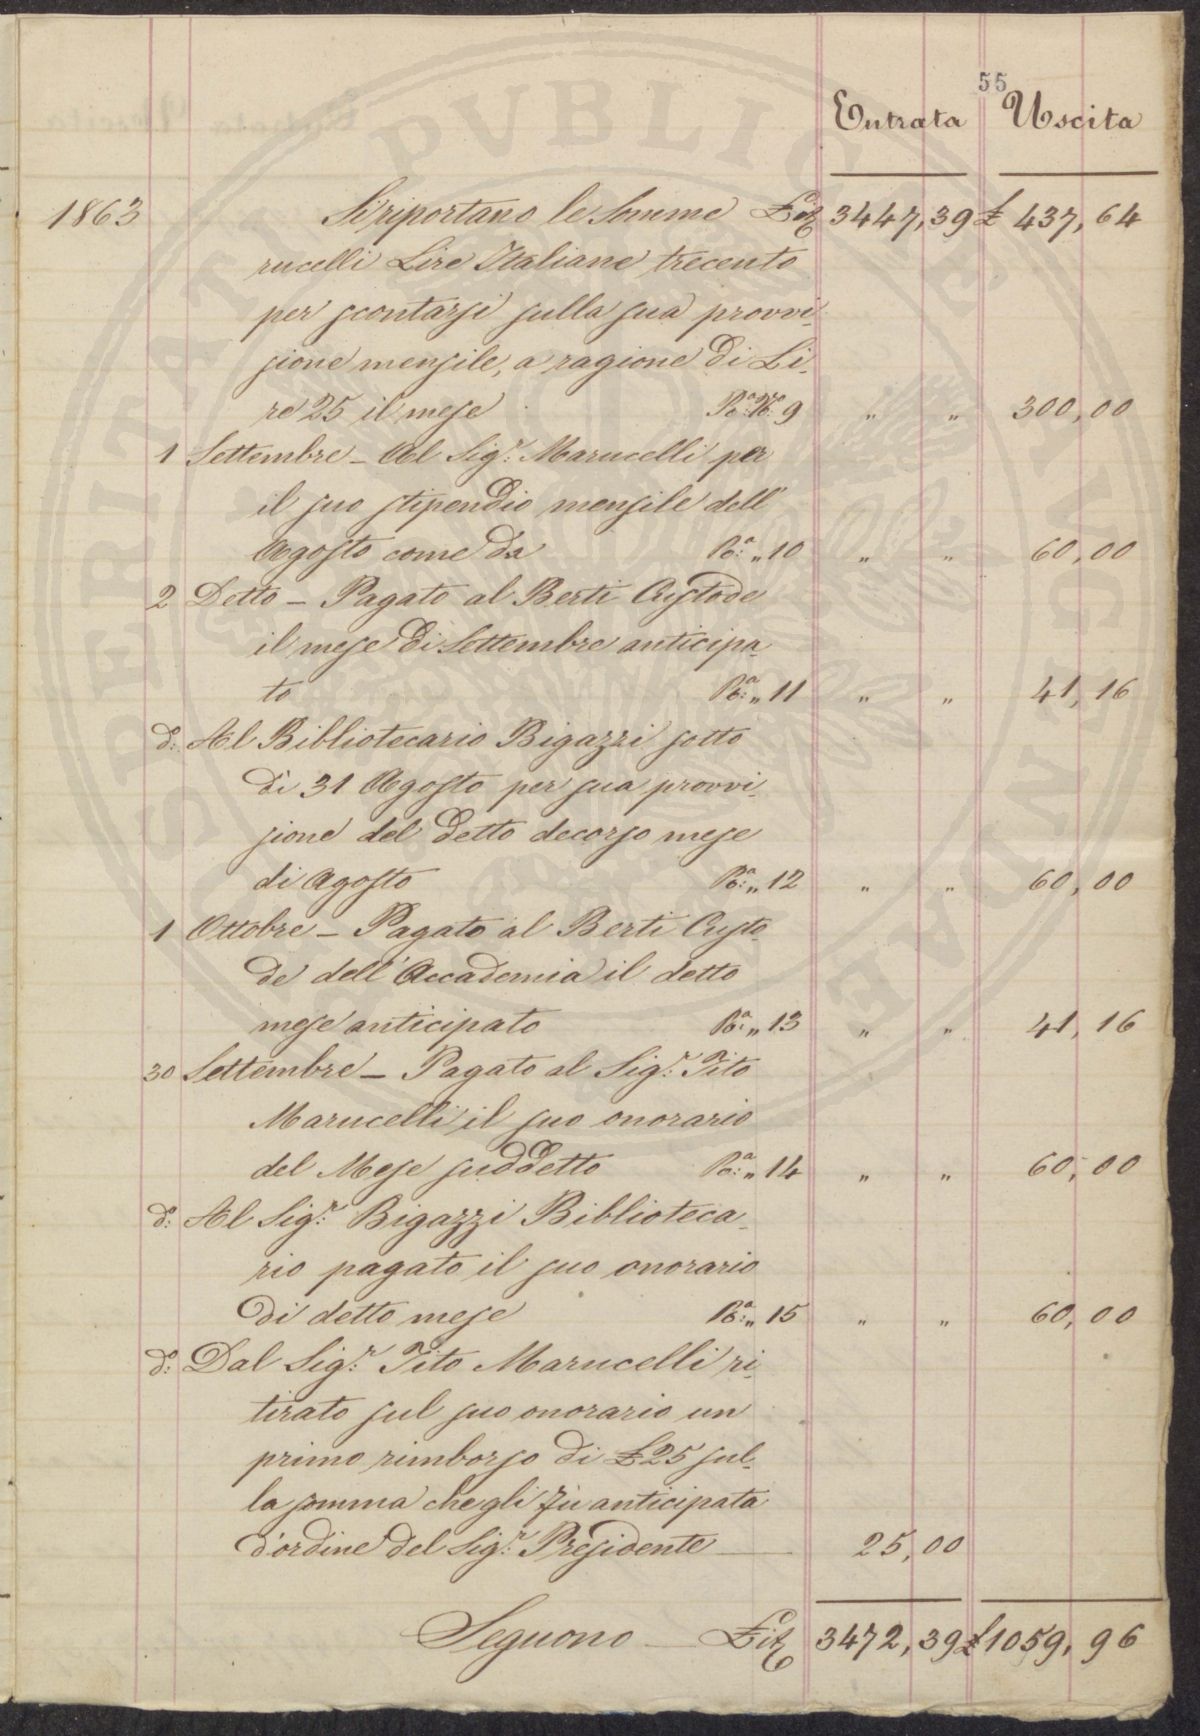 55
Entrata Uscita
1863 Si riportano le Somme £it 3447,39 £ 437,64
rucelli Lire Italiane trecento
per scontarsi sulla sua provvi-
sione mensile, a ragione di Li-
re 25 il mese Ra: No: 9 " " 300,00
1 Settembre - Al Sigr: Marucelli per
il suo stipendio mensile dell'
Agosto come da Ra: " 10 " " 60,00
2 Detto - Pagato al Berti Custode
il mese di Settembre anticipa-
to Ra: " 11 " " 41,16
d: Al Bibliotecario Bigazzi sotto
dì 31 Agosto per sua provvi-
sione del detto decorso mese
di Agosto Ra: " 12 " " 60,00
1 Ottobre - Pagato al Berti Custo-
de dell'Accademia il detto
mese anticipato Ra: " 13 " " 41,16
30 Settembre - Pagato al Sigr: Tito
Marucelli il suo onorario
del Mese suddetto Ra: " 14 " " 60,00
d: Al Sigr: Bigazzi Biblioteca-
rio pagato il suo onorario
di detto mese Ra: " 15 " " 60,00
d: Dal Sigr: Tito Marucelli ri-
tirato sul suo onorario un
primo rimborso di £25 sul-
la somma che gli fù anticipata
d'ordine del Sigr: Presidente 25,00
Seguono £it 3472,39 £1059,96